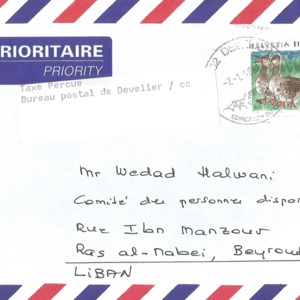 PRIORITAIRE
PRIORITY
Taxe Percue
Bureau postal de Develier / cc
HELVETIA 11
Mr Wedad Halwani
Comité des personnes dispar
Rue Ibn Manzour
Ras al-Nabei, Beyrou
LIBAN